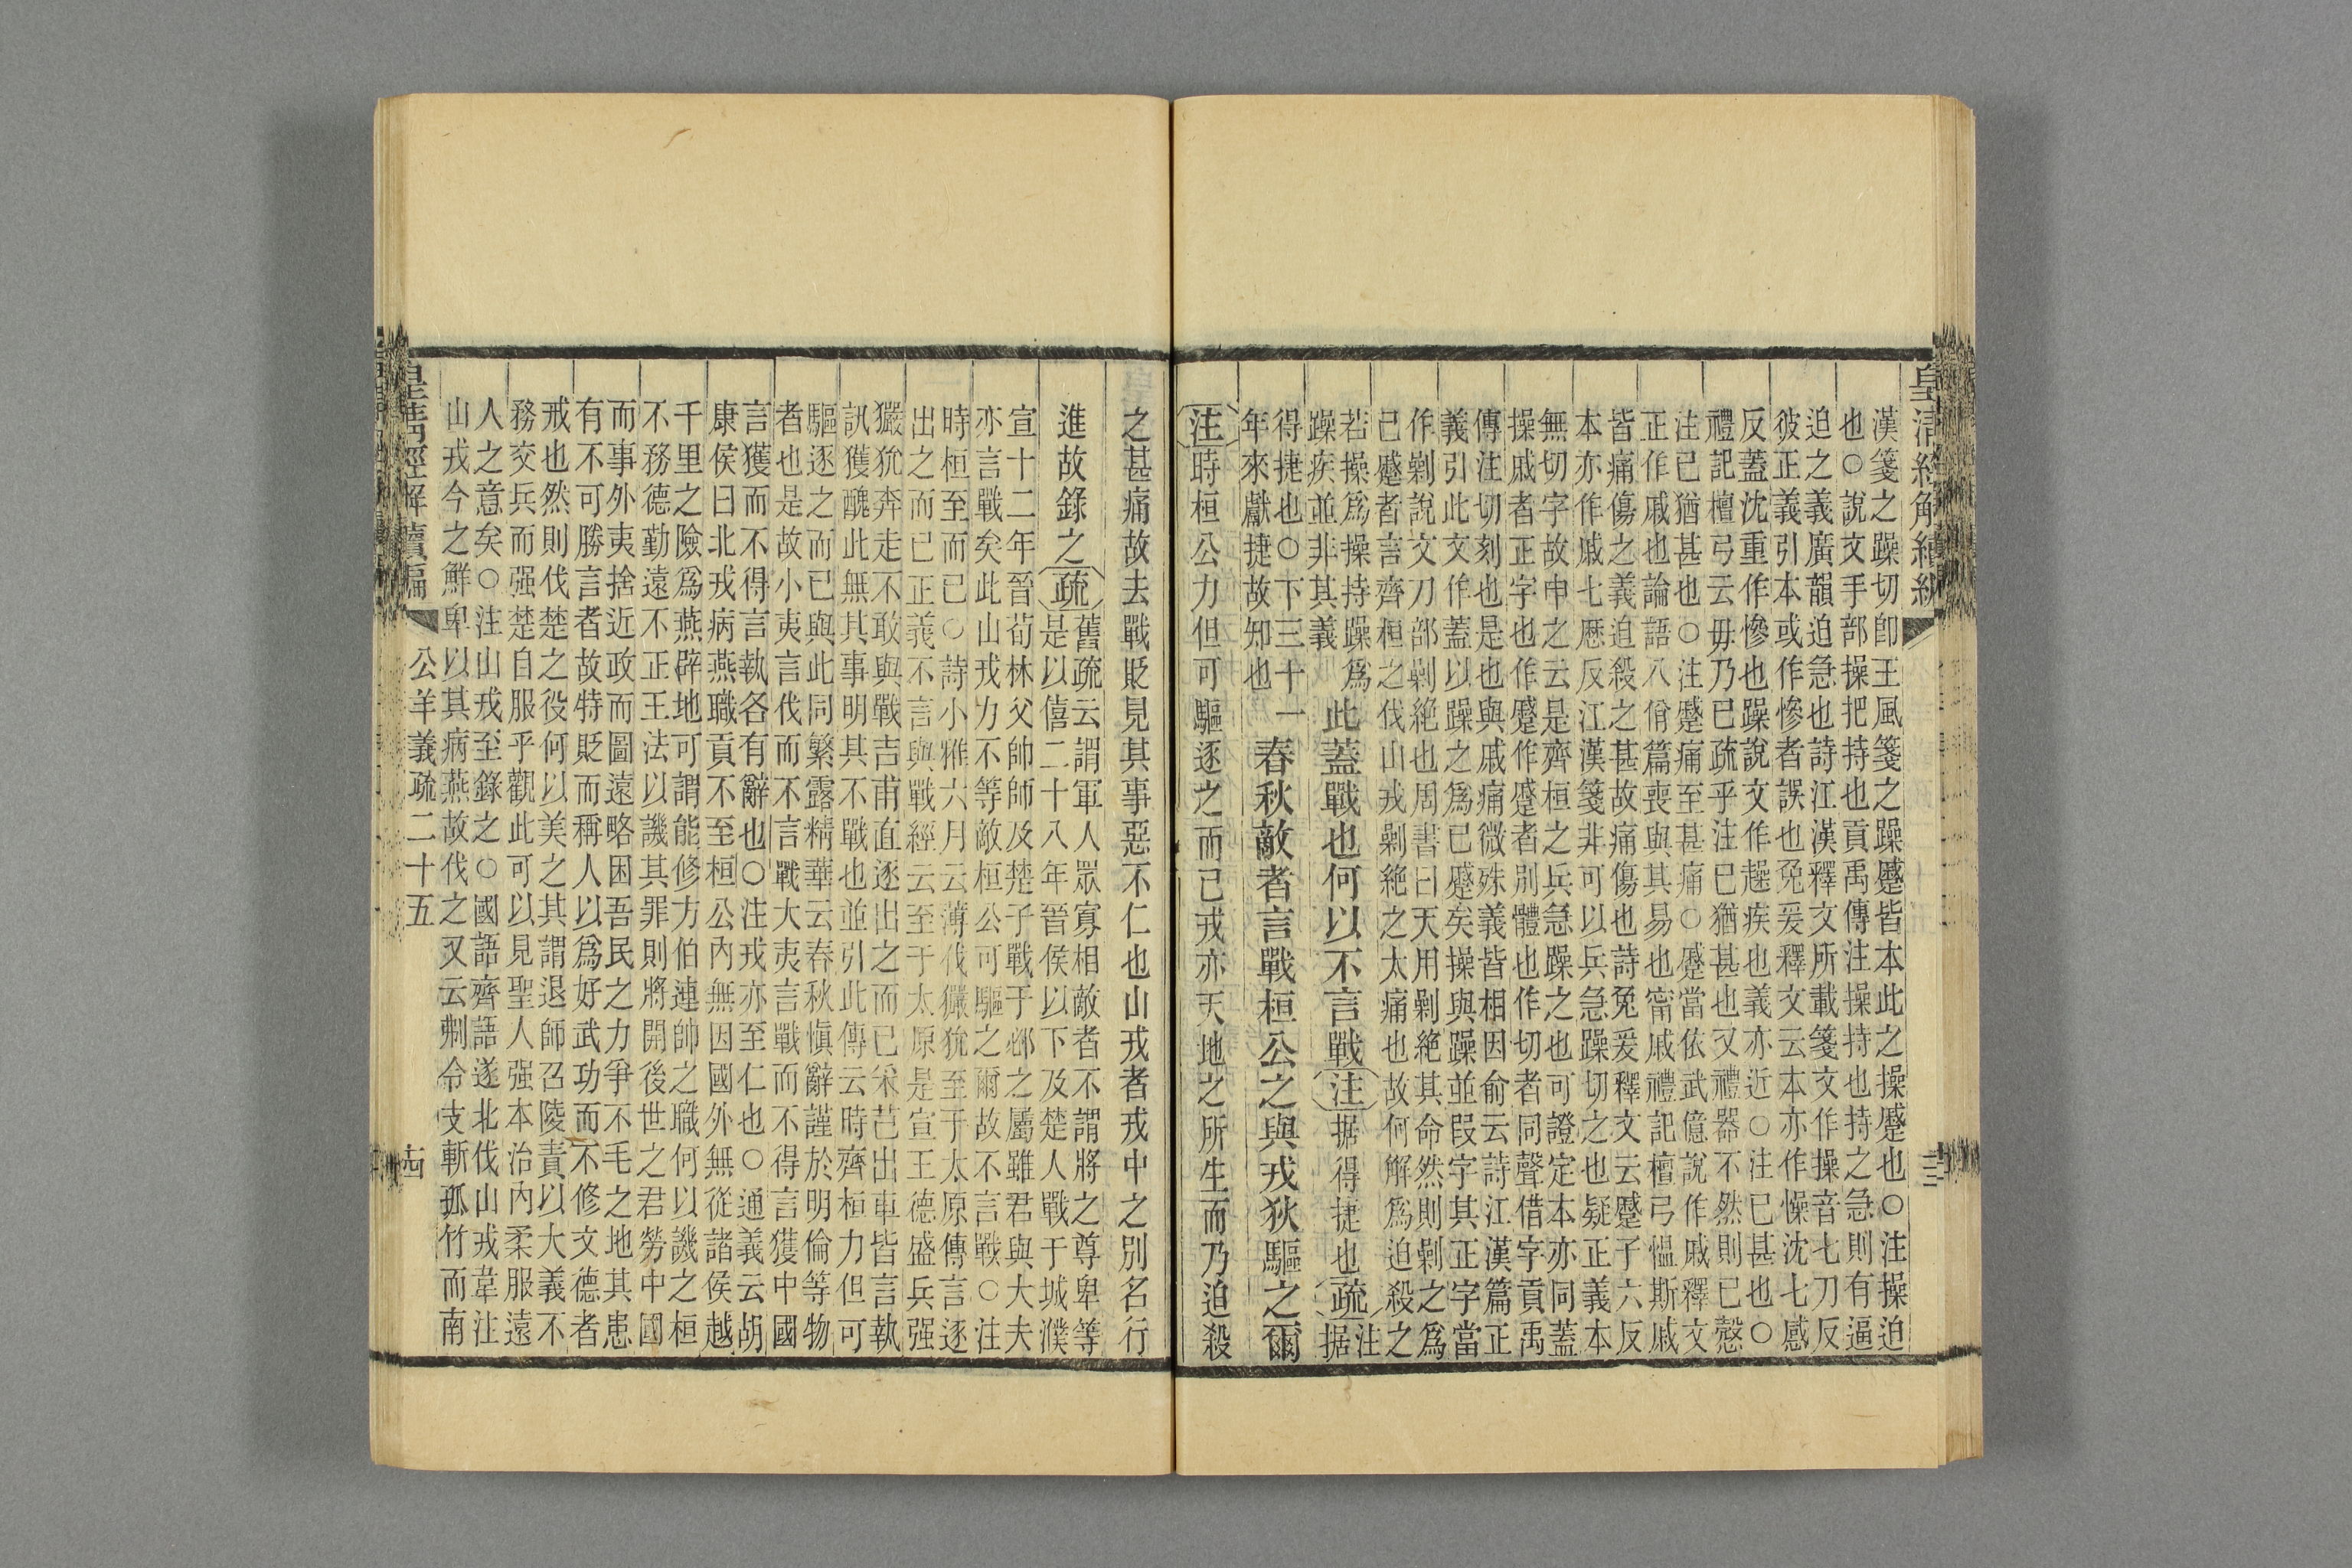 皇清經解續編
漢箋之躁切卽王風箋之躁蹙皆本此之操蹙也○注操迫
也○說文手部操把持也貢禹傳注操持也持之急則有逼
迫之義廣韻迫急也詩江漢釋文所載箋文作操音七刀反
彼正義引本或作慘者誤也兔爰釋文云本亦作懆沈七感
反蓋沈重作慘也躁說文作趮疾也義亦近○注已甚也○
禮記檀弓云毋乃已疏乎注已猶甚也又禮器不然則已愨
注已猶甚也○注蹙痛至甚痛○蹙當依武億說作戚釋文
正作戚也論語八佾篇喪與其易也甯戚禮記檀弓慍斯戚
皆痛傷之義迫殺之甚故痛傷也詩兔爰釋文云蹙子六反
本亦作戚七歷反江漢箋非可以兵急躁切之也疑正義本
無切字故申之云是齊桓之兵急躁之也可證定本亦同蓋
操戚者正字也作蹙作蹙者別體也作切者同聲借字貢禹
傳注切刻也是也與戚痛微殊義皆相因俞云詩江漢篇正
義引此文作蓋以躁之爲已蹙矣操與躁並叚字其正字當
作剿說文刀部剿絕也周書曰天用剿絕其命然則剿之爲
已蹙者言齊桓之伐山戎剿絕之太痛也故何解爲迫殺之
若操爲操持躁爲
躁疾並非其義
此蓋戰也何以不言戰注据得捷也疏注据
得捷也○下三十一
年來獻捷故知也
春秋敵者言戰桓公之與戎狄驅之爾
注時桓公力但可驅逐之而已戎亦天地之所生而乃迫殺
之甚痛故去戰貶見其事惡不仁也山戎者戎中之別名行
進故錄之疏舊疏云謂軍人眾寡相敵者不謂將之尊卑等
是以僖二十八年晉侯以下及楚人戰于城濮
宣十二年晉荀林父帥師及楚子戰于邲之屬雖君與大夫
亦言戰矣此山戎力不等敵桓公可驅之爾故不言戰○注
時桓至而已○詩小雅六月云薄伐玁狁至于太原傳言逐
出之而已正義不言與戰經云至于太原是宣王德盛兵强
玁狁奔走不敢與戰吉甫直逐出之而已采芑出車皆言執
訊獲醜此無其事明其不戰也並引此傳云時齊桓力但可
驅逐之而已與此同繁露精華云春秋愼辭謹於明倫等物
者也是故小夷言伐而不言戰大夷言戰而不得言獲中國
言獲而不得言執各有辭也○注戎亦至仁也○通義云胡
康侯曰北戎病燕職貢不至桓公內無因國外無從諸侯越
千里之險爲燕辟地可謂能修方伯連帥之職何以譏之桓
不務德勤遠不正王法以譏其罪則將開後世之君勞中國
而事外夷捨近政而圖遠略困吾民之力爭不毛之地其患
有不可勝言者故特貶而稱人以爲好武功而不修文德者
戒也然則伐楚之役何以美之其謂退師召陵責以大義不
務交兵而强楚自服乎觀此可以見聖人强本治內柔服遠
人之意矣○注山戎至錄之○國語齊語遂北伐山戎韋注
山戎今之鮮卑以其病燕故伐之又云刜令支斬孤竹而南
皇清經解續編 公羊義疏二十五 古